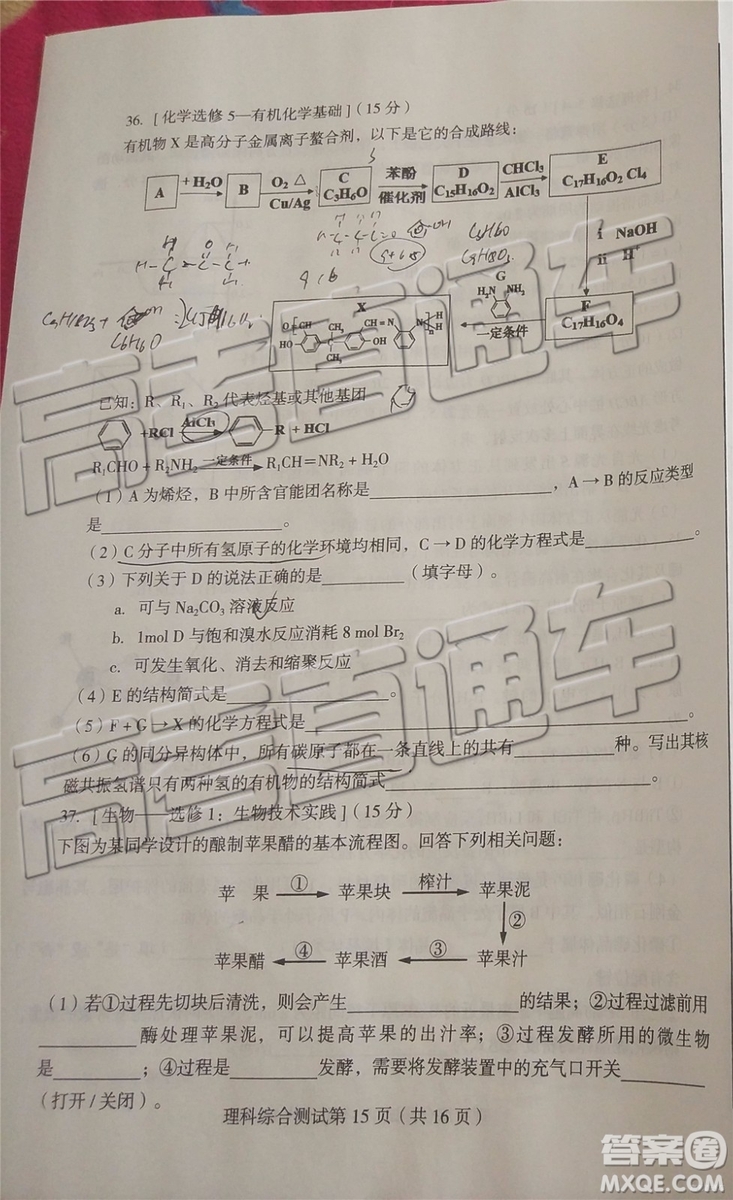 36. [化学选修5—有机化学基础](15分)
有机物X是高分子金属离子螯合剂，以下是它的合成路线：
A +H₂O B O₂ △ Cu/Ag C C₃H₆O 苯酚 催化剂 D C₁₅H₁₆O₂ CHCl₃ AlCl₃ E C₁₇H₁₆O₂ Cl₄
i NaOH
ii H⁺
G
H₂N NH₂
一定条件
F C₁₇H₁₆O₄
X
HO CH₃ CH₃ CH=N OH N H H n
C₃H₆O
C₆H₆O
9+6
已知：R、R₁、R₂代表烃基或其他基团
+RCl AlCl₃ R + HCl
R₁CHO + R₂NH₂ 一定条件 R₁CH=NR₂ + H₂O
(1) A为烯烃，B中所含官能团名称是____，A→B的反应类型
是____。
(2) C分子中所有氢原子的化学环境均相同，C→D的化学方程式是____。
(3) 下列关于D的说法正确的是____(填字母)。
a. 可与Na₂CO₃溶液反应
b. 1mol D与饱和溴水反应消耗8 mol Br₂
c. 可发生氧化、消去和缩聚反应
(4) E的结构简式是____。
(5) F+G→X的化学方程式是____。
(6) G的同分异构体中，所有碳原子都在一条直线上的共有____种。写出其核
磁共振氢谱只有两种氢的有机物的结构简式____。
37. [生物——选修1：生物技术实践](15分)
下图为某同学设计的酿制苹果醋的基本流程图。回答下列相关问题：
苹果 ① 苹果块 榨汁 苹果泥
②
苹果醋 ④ 苹果酒 ③ 苹果汁
(1) 若①过程先切块后清洗，则会产生____的结果；②过程过滤前用
____酶处理苹果泥，可以提高苹果的出汁率；③过程发酵所用的微生物
是____；④过程是____发酵，需要将发酵装置中的充气口开关____
(打开/关闭)。
理科综合测试第15页(共16页)
高考直通车
高考直通车
答案圈
MXQE.COM